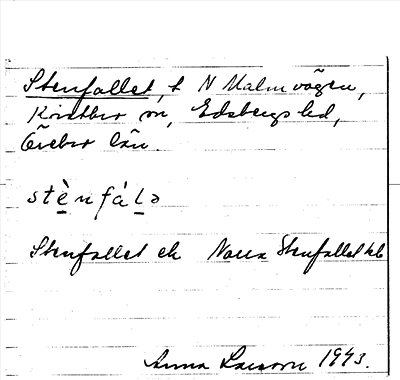 Stenfallet, t N Malmvägen,
Knista sn, Edsbergs hd,
Örebro län.
stè̱nfáḻə
Stenfallet ek Norra Stenfallet
Anna Larsson 1943.